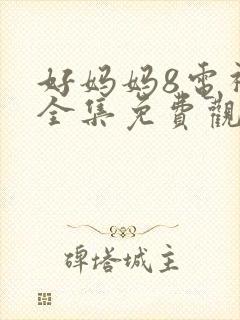 好妈妈8电视
全集免費觀
碑塔城主